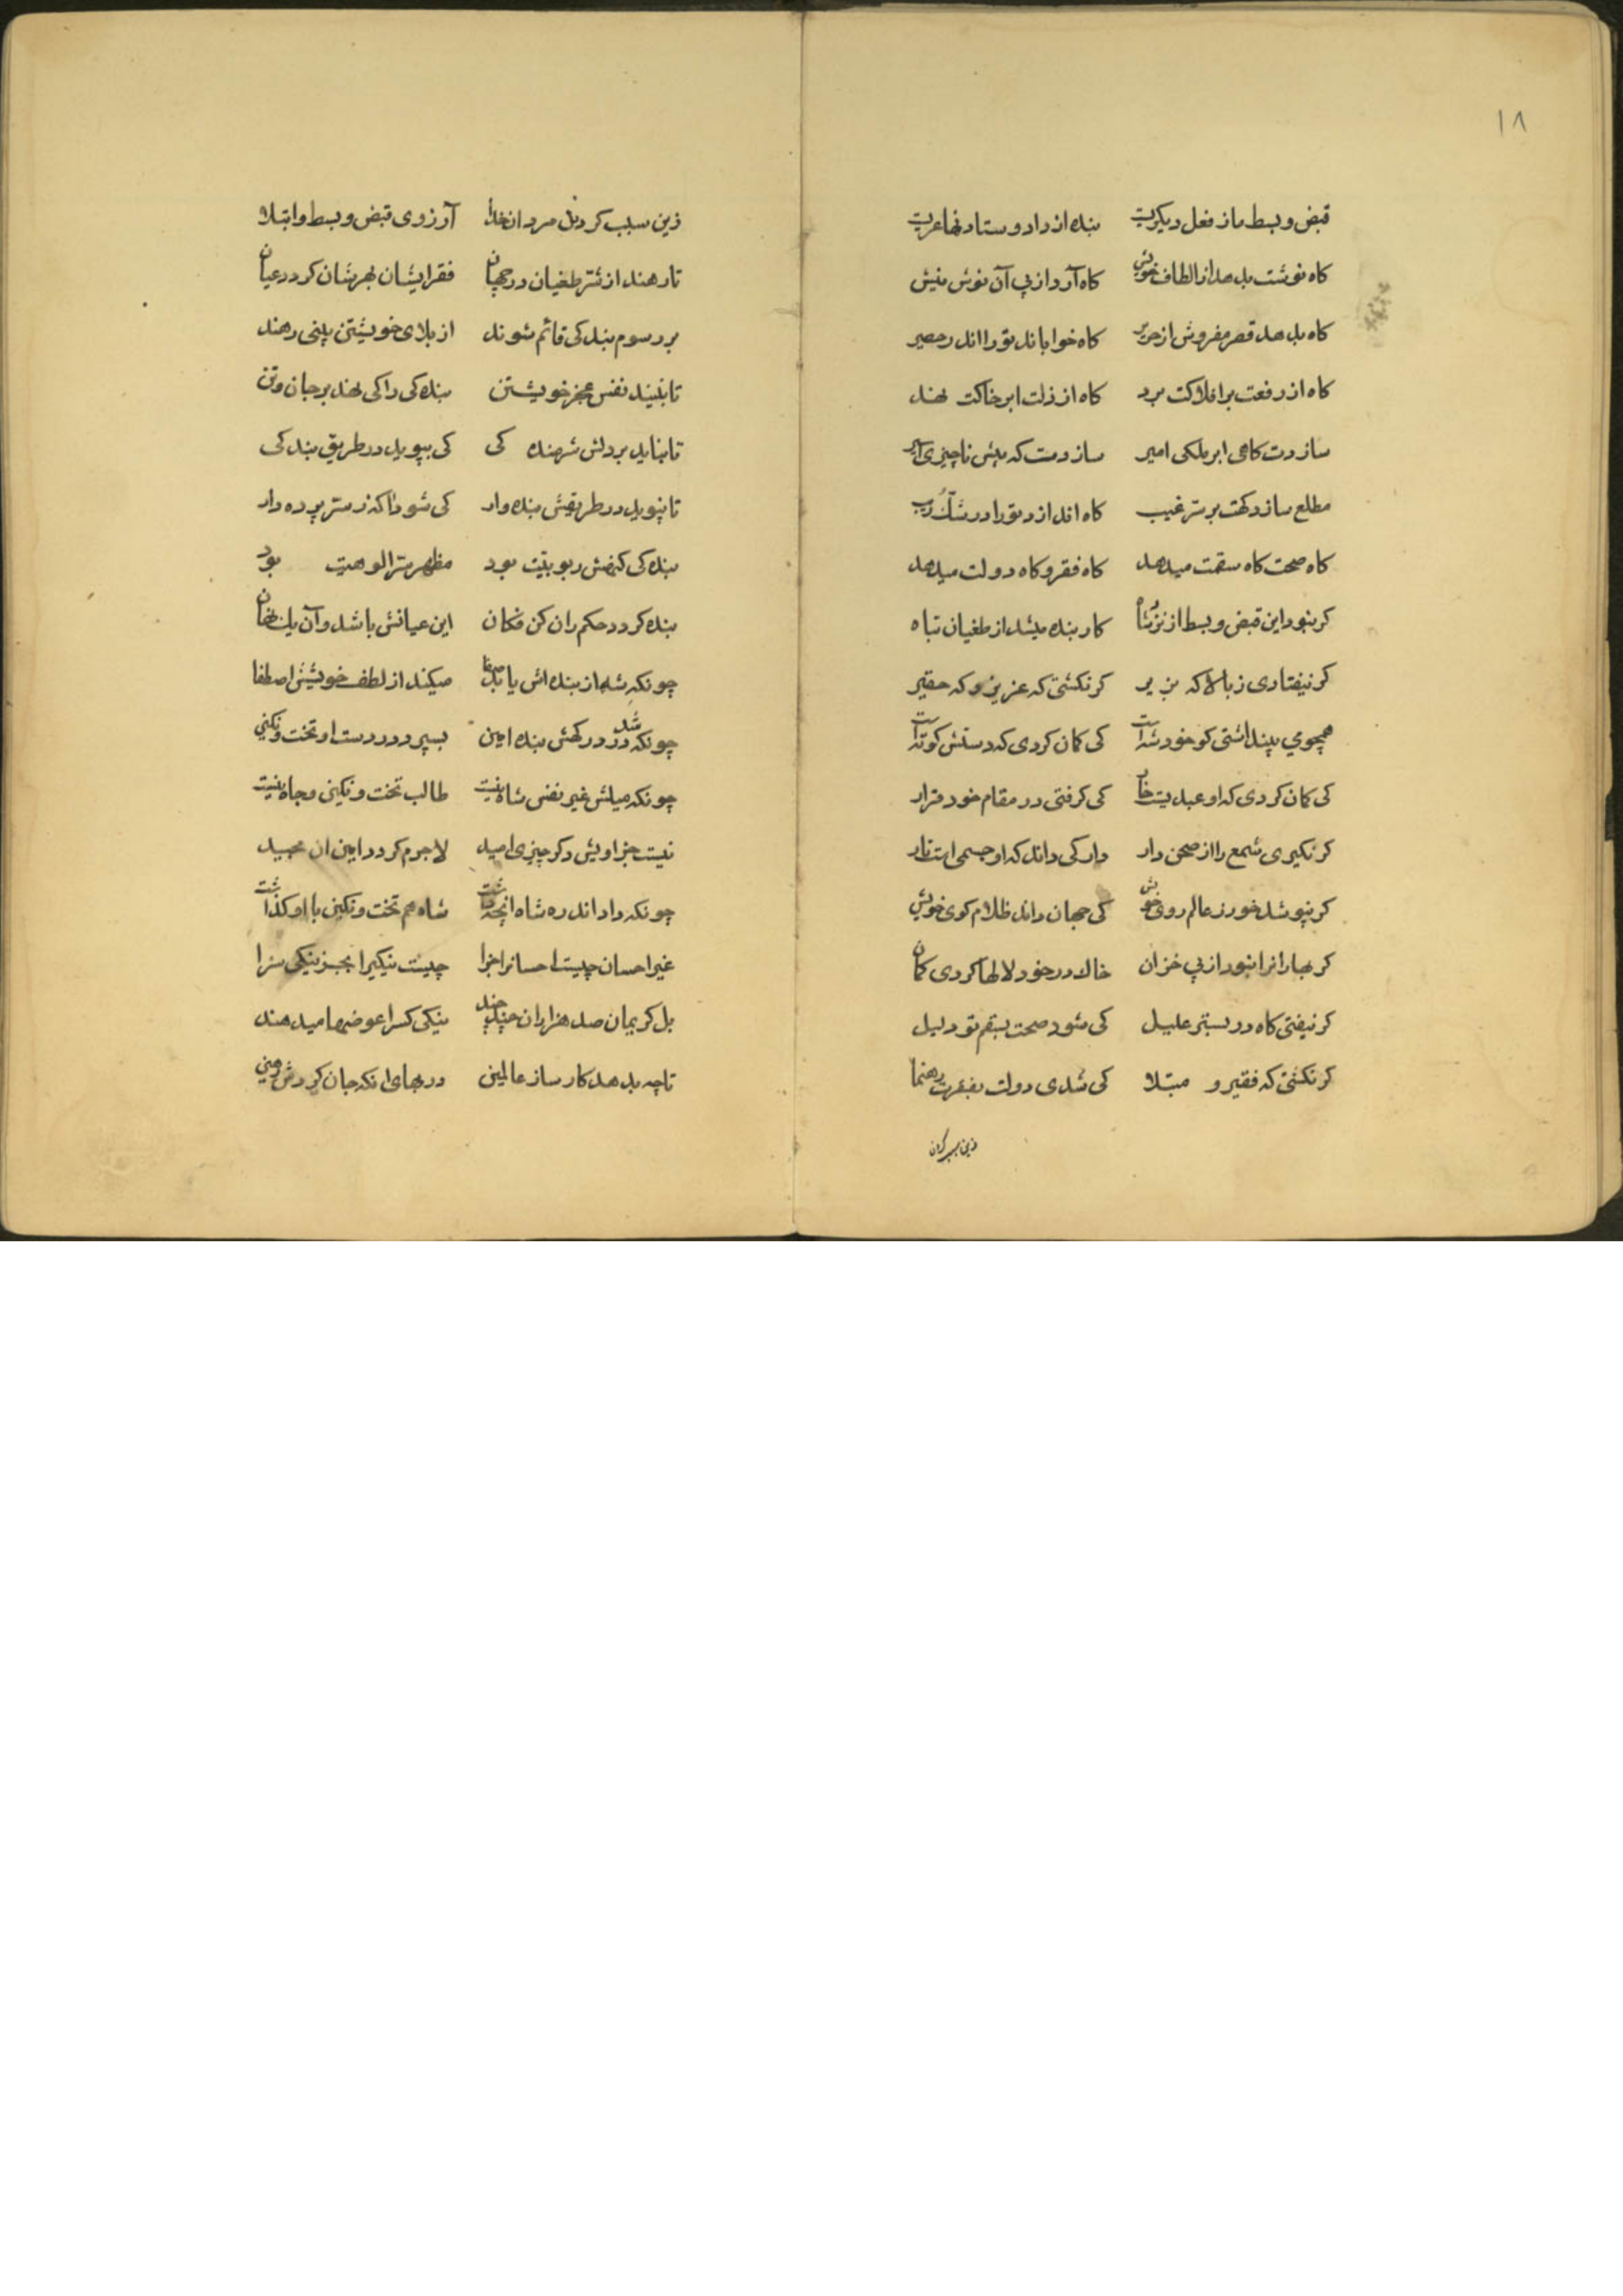 ۱۸
قبض و بسط ما ز فعل دیگریست بنده از داد و ستاد نها عریست
کاه نوشت بدهد از الطاف خویش کاه آرد از پی آن نوش نیش
کاه بدهد قصر مفروش از حریر کاه خواباند تو را اندر حصیر
کاه از رفعت بر افلاکت برد کاه از ذلت ابر خاکت نهد
سازدت کاهی ابر ملکی امیر سازدت که پیش ناچیزی
مطلع سازد کهت بر سر غیب کاه اندازد تو را در شک و ریب
کاه صحت کاه سقمت میدهد کاه فقر و کاه دولت میدهد
کر نبود این قبض و بسط از نزد شاه کار بنده میشد از طغیان تباه
کر نیفتادی ز بالا که بزیر کر نکشتی که عزیز و که حقیر
همچومی پنداشتی کو خود شه است کی کمان کردی که دستش کوته است
کی کمان کردی که او عبدیست خار کی کرفتی در مقام خود قرار
کر نکیری شمع را از صحن دار دار کی داند که او جسمی است تار
کر نپوشد خور ز عالم روی خویش کی جهان داند ظلام کوی خویش
کر بهارانرا نبود از پی خزان خاک در خود لالها کردی کمان
کر نیفتی کاه در بستر علیل کی شود صحت بسقم تو دلیل
کر نکشتی که فقیر و مبتلا کی شدی دولت بفقرت رهنما
زین سبب کردن
زین سبب کردند مردان خدا آرزوی قبض و بسط و ابتلا
تا رهند از شر طغیان در جهان فقر ایشان بهرشان کردد عیان
بر رسوم بندکی قائم شوند از بلای خویشتن بینی رهند
تا نبیند نفس عجز خویشتن بنده کی را کی نهد بر جان و تن
تا نیاید بر دلش شرمنده کی کی بپوید در طریق بندکی
تا نپوید در طریقش بنده وار کی شود آکه ز سر پرده دار
بنده کی کنهش ربوبیت بود مظهر سر الوهیت بود
بنده کردد حکم ران کن فکان این عیانش باشد و آن یک نهان
چونکه شه از بنده اش یابد صفا میکند از لطف خویشش اصطفا
چونکه شد در درکهش بنده امین بسپرد در دست او تخت و نکین
چونکه میلش غیر نفس شاه نیست طالب تخت و نکین و جاه نیست
نیست جز اویش دکر چیزی امید لاجرم کردد امین آن مجید
چونکه داد اندر ره شاه آنچه داشت شاه هم تخت و نکین با او کذاشت
غیر احسان چیست احسانرا جزا چیست نیکیرا بجز نیکی سزا
بل کریمان صد هزاران چند چند نیکی کسرا عوضها میدهند
تا چه بدهد کارساز عالمین در بهای آنکه جان کردش رهین